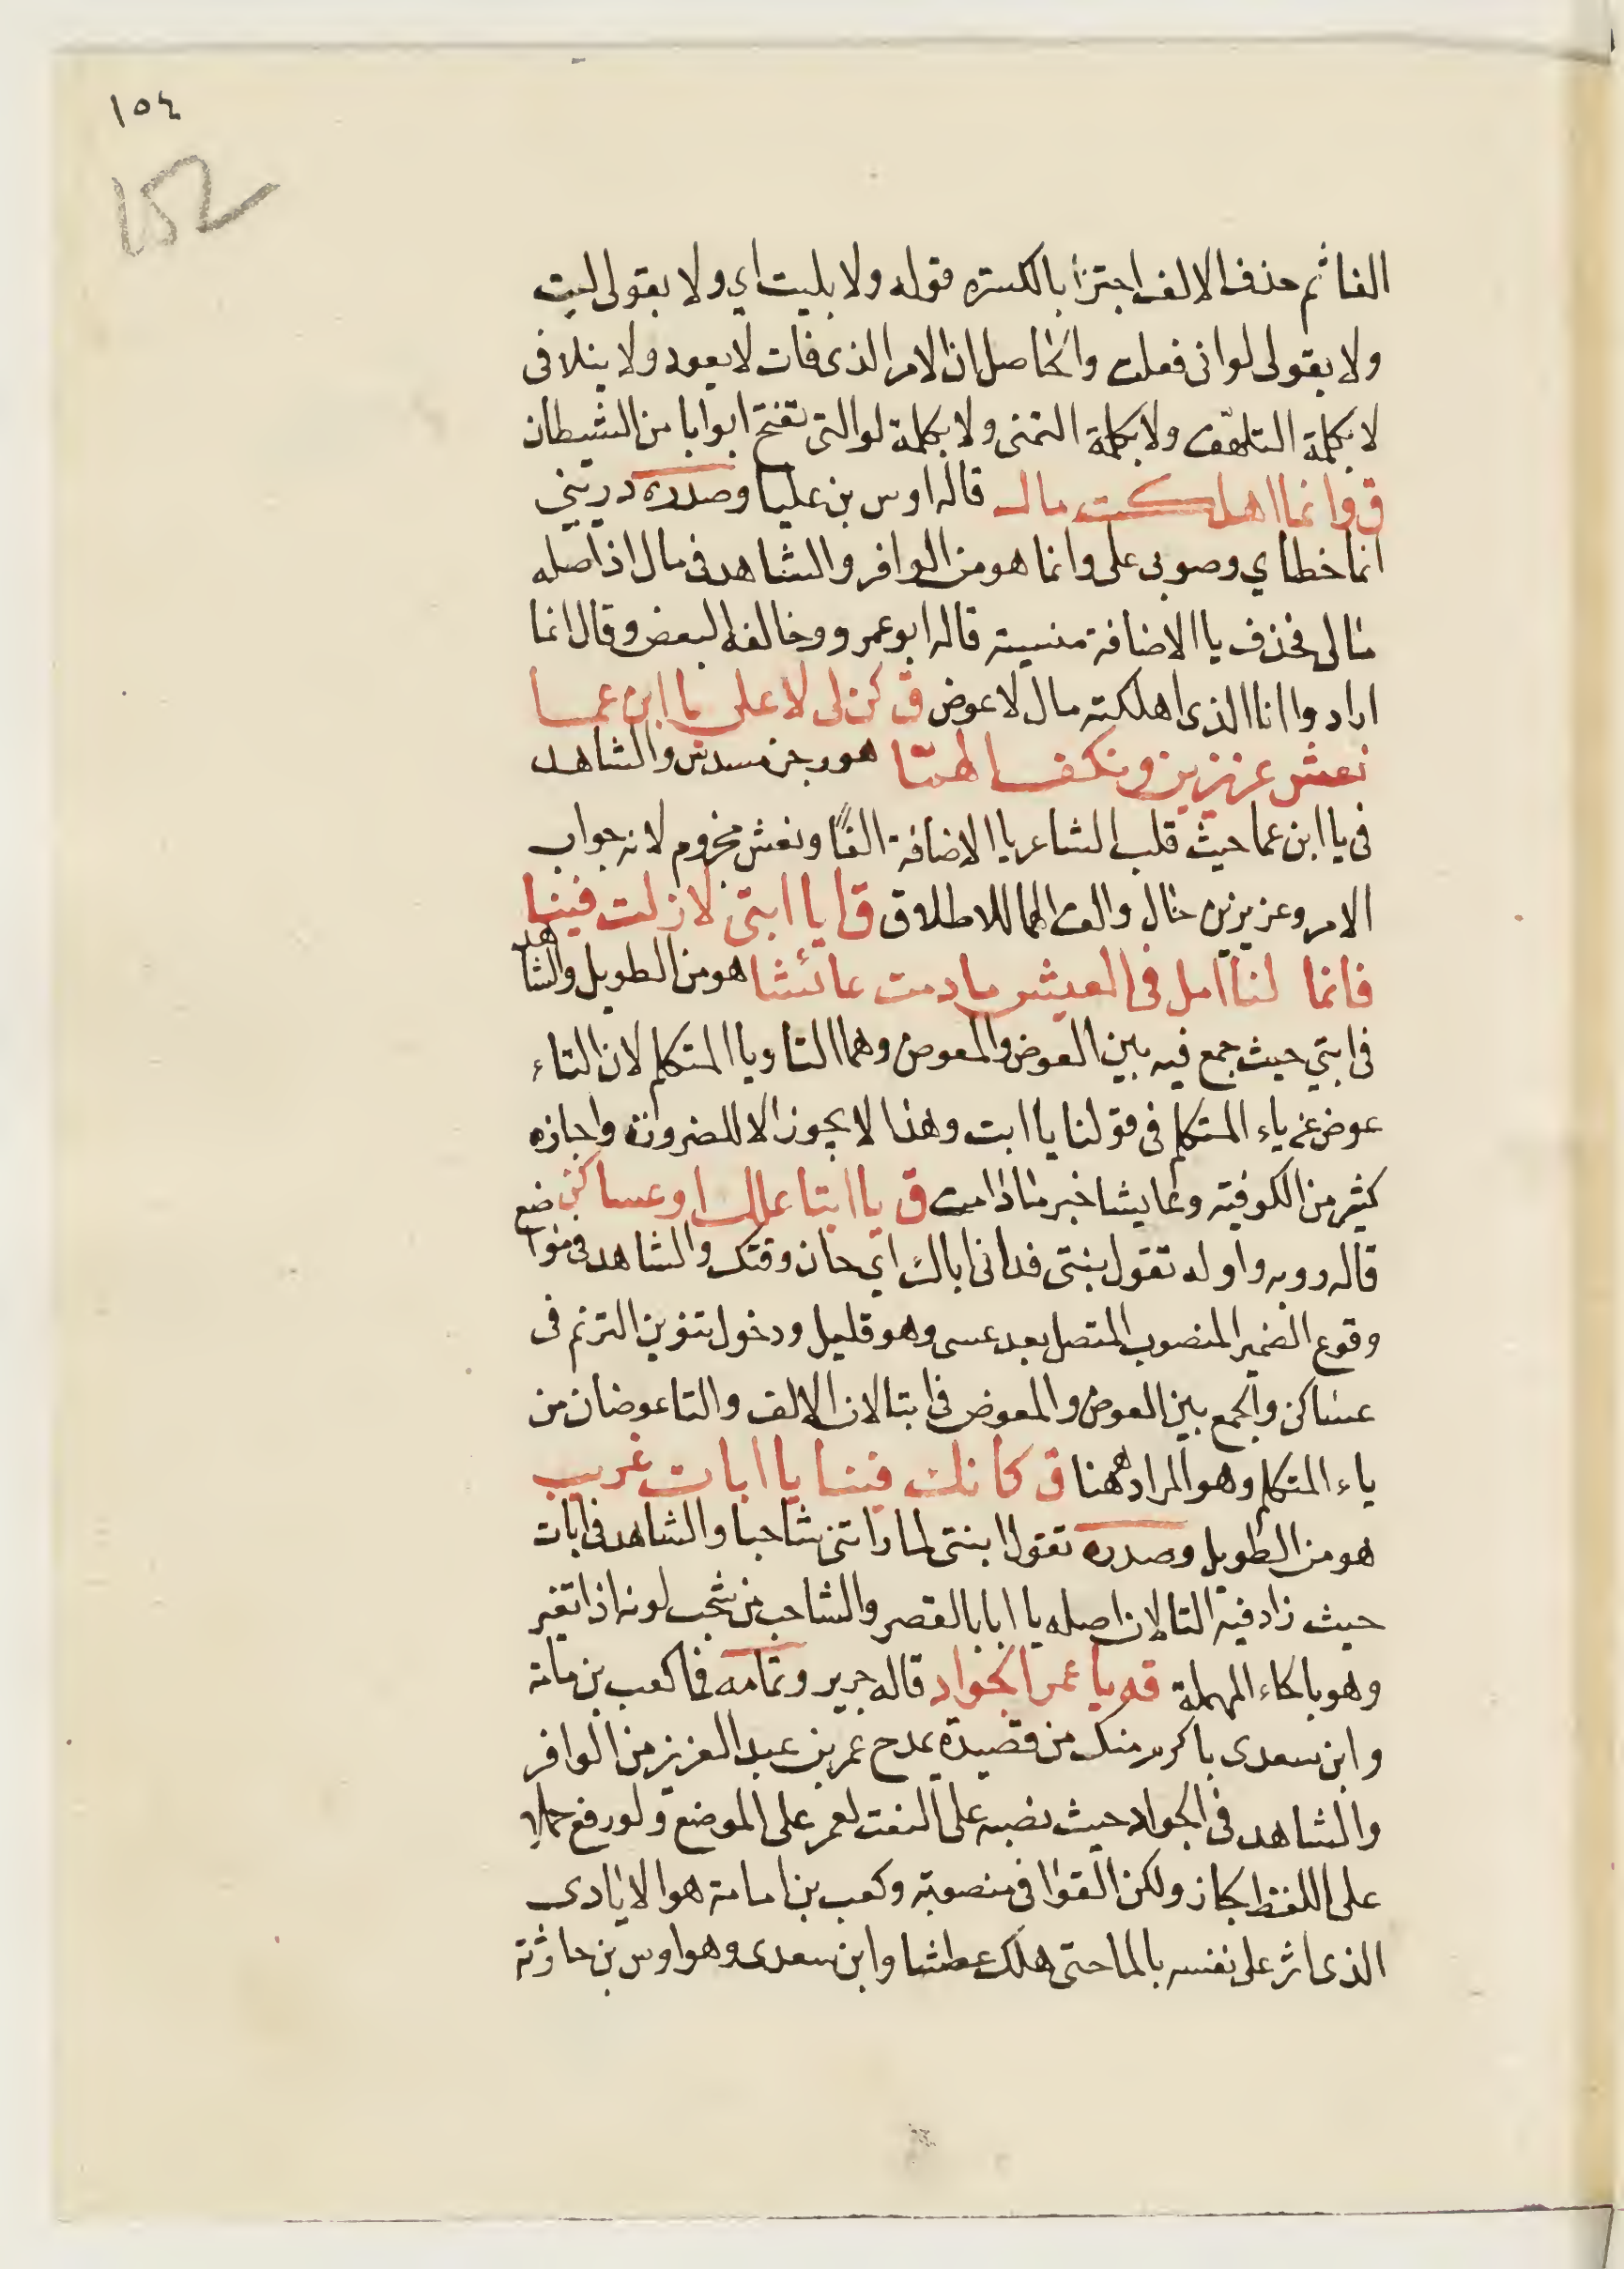 ١٥٤
152
الفا ثم حذف الالف اجتزا بالكسره قوله ولا بليت اي ولا بقولي ليت
ولا بقولي لو اني فعلت والحاصل ان الامر الذي فات لا يعود ولا يتلافى
لا بكلمة التلهّف ولا بكلمة التمنى ولا بكلمة لو التى تفتح ابوابا من الشيطان
ق وانما اهلكت مال قاله اوس بن علبا وصدره ذريني
انما خطاي وصوبى على وانما هو من الوافر والشاهد فى مال اذ اصله
مالى فحذف يا الاضافة منسية قاله ابو عمرو وخالفه البعض وقال انما
اراد وا انا الذى اهلكته مال لا عوض ق كن لى لا على يا ابن عما
نعش عزيزين ونكفا لهمّا هو رجز مسدس والشاهد
فى يا ابن عما حيث قلب الشاعر يا الاضافة الفًا ونعش مجزوم لانه جواب
الامر وعزيزين حال والف الهما للاطلاق ق ايا ابتى لازلت فينا
فانما لنا امل فى العيش مادمت عائشا هو من الطويل والشاهد
فى ابتي حيث جمع فيه بين العوض والمعوض وهما التا ويا المتكلم لان التاء
عوض عن ياء المتكلم فى قولنا يا ابت وهذا لا يجوز الا للضرورة واجازه
كثير من الكوفية وعايشا خبر ما دامت ق يا ابتا علك او عساكن
قاله روبه واوله تقول بنتى قد انى اباك اي حان وقتك والشاهد فى مواضع
وقوع الضمير المنصوب المتصل بعد عسى وهو قليل ودخول تنوين الترنم فى
عساكن والجمع بين العوض والمعوض فى ابتا لان الالف والتا عوضان من
ياء المتكلم وهو المراد ههنا ق كانك فينا يا ابات غريب
هو من الطويل وصدره تقول ابنتى لما راتنى شاحبا والشاهد فى ابات
حيث زاد فيه التا لان اصله يا ابا بالقصر والشاحب من شحب لونه اذا تغير
وهو بالحاء المهملة قه يا عمر الجواد قاله جرير وتمامه فما كعب بن مامة
وابن سعدى باكرم منك من قصيدة يمدح عمر بن عبد العزيز من الوافر
والشاهد فى الجواد حيث نصبه على النعت لعمر على الموضع ولو رفع حملا
على اللفظ لجاز ولكن القوافى منصوبة وكعب بن امامة هو الايادى
الذى اثر على نفسه بالما حتى هلك عطشا وابن سعدى وهو اوس بن حارثة